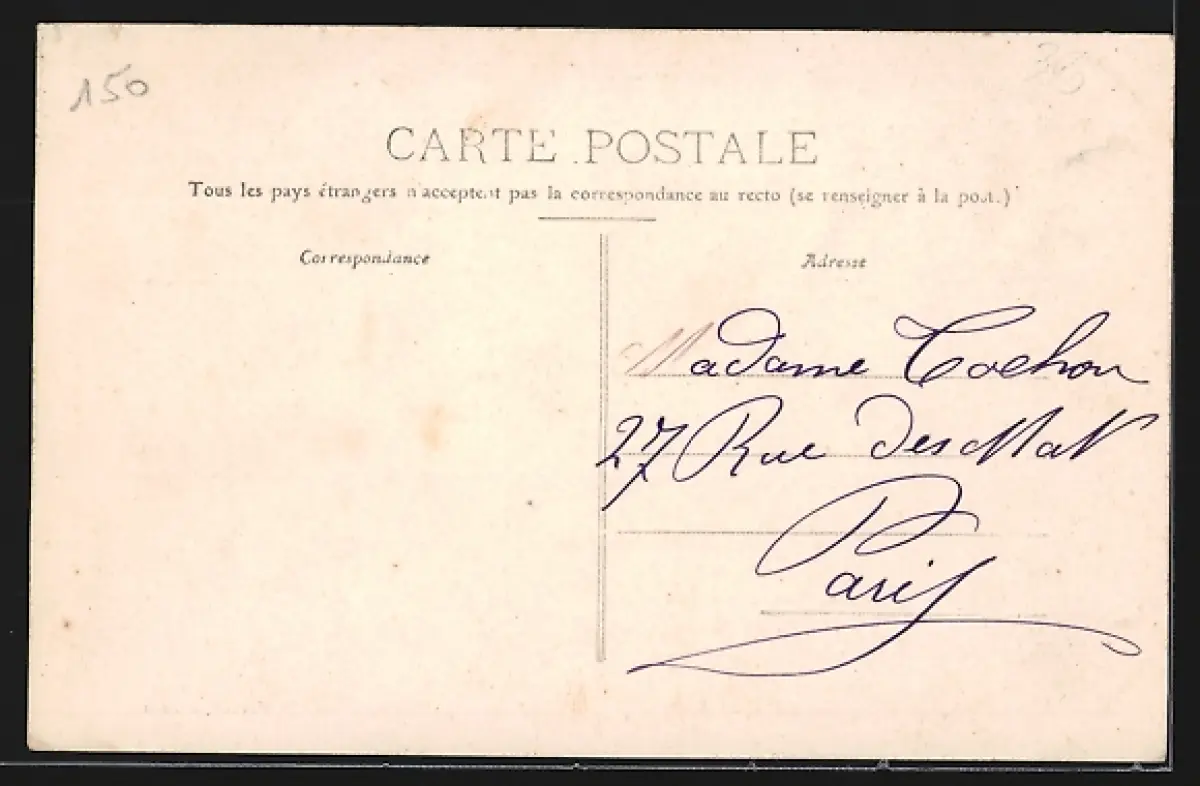 150
CARTE POSTALE
Tous les pays étrangers n'acceptent pas la correspondance au recto (se renseigner à la poste.)
Correspondance
Adresse
Madame Cochon
27 Rue des
Paris